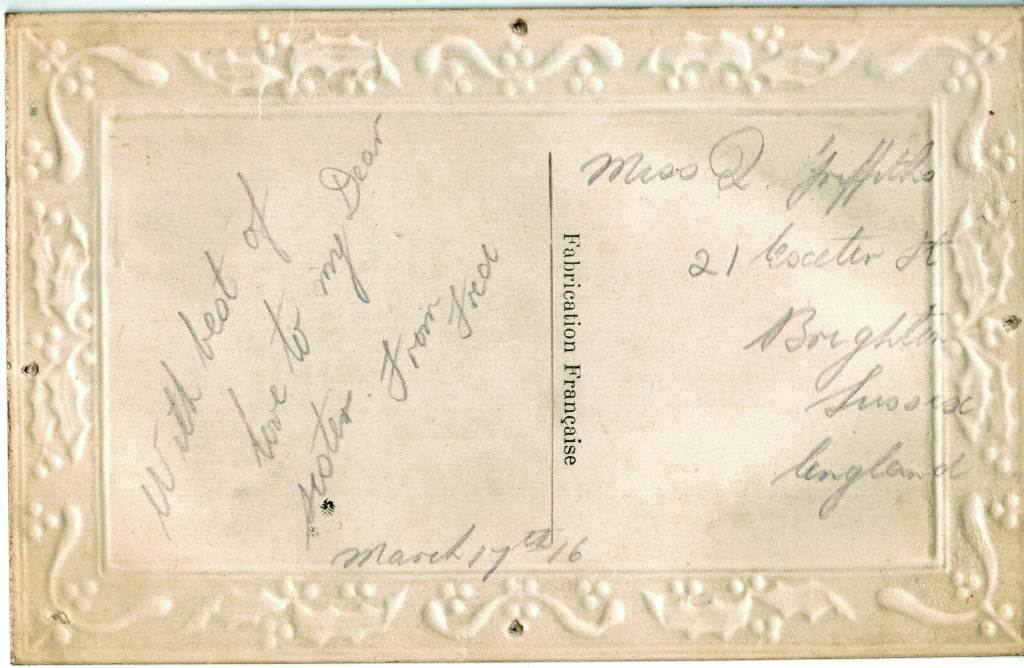 With best of
love to my Dear
sister. From Fred
March 17th 16
Fabrication Française
Miss D. Griffiths
21 Exeter St
Brighton
Sussex
England